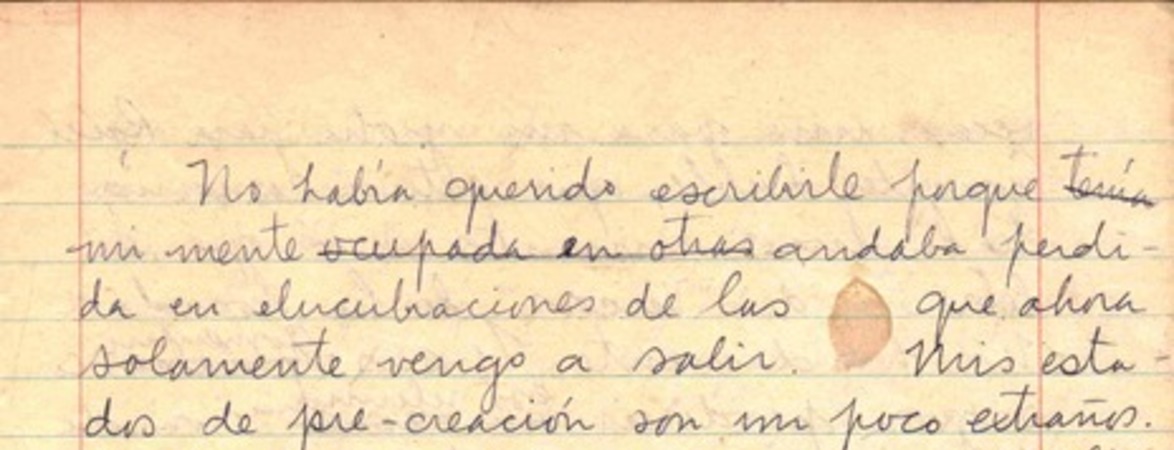 No había querido escribirle porque tenía
mi mente ocupada en otras andaba perdi-
da en elucubraciones de las que ahora
solamente vengo a salir. Mis esta-
dos de pre-creación son un poco extraños.